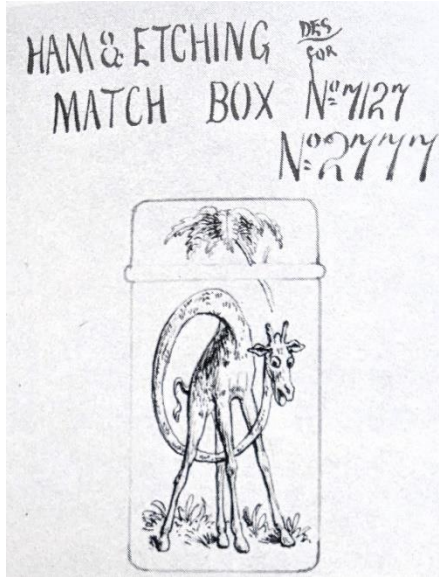 HAM & ETCHING DES
FOR
MATCH BOX Nº 7127
Nº 2777